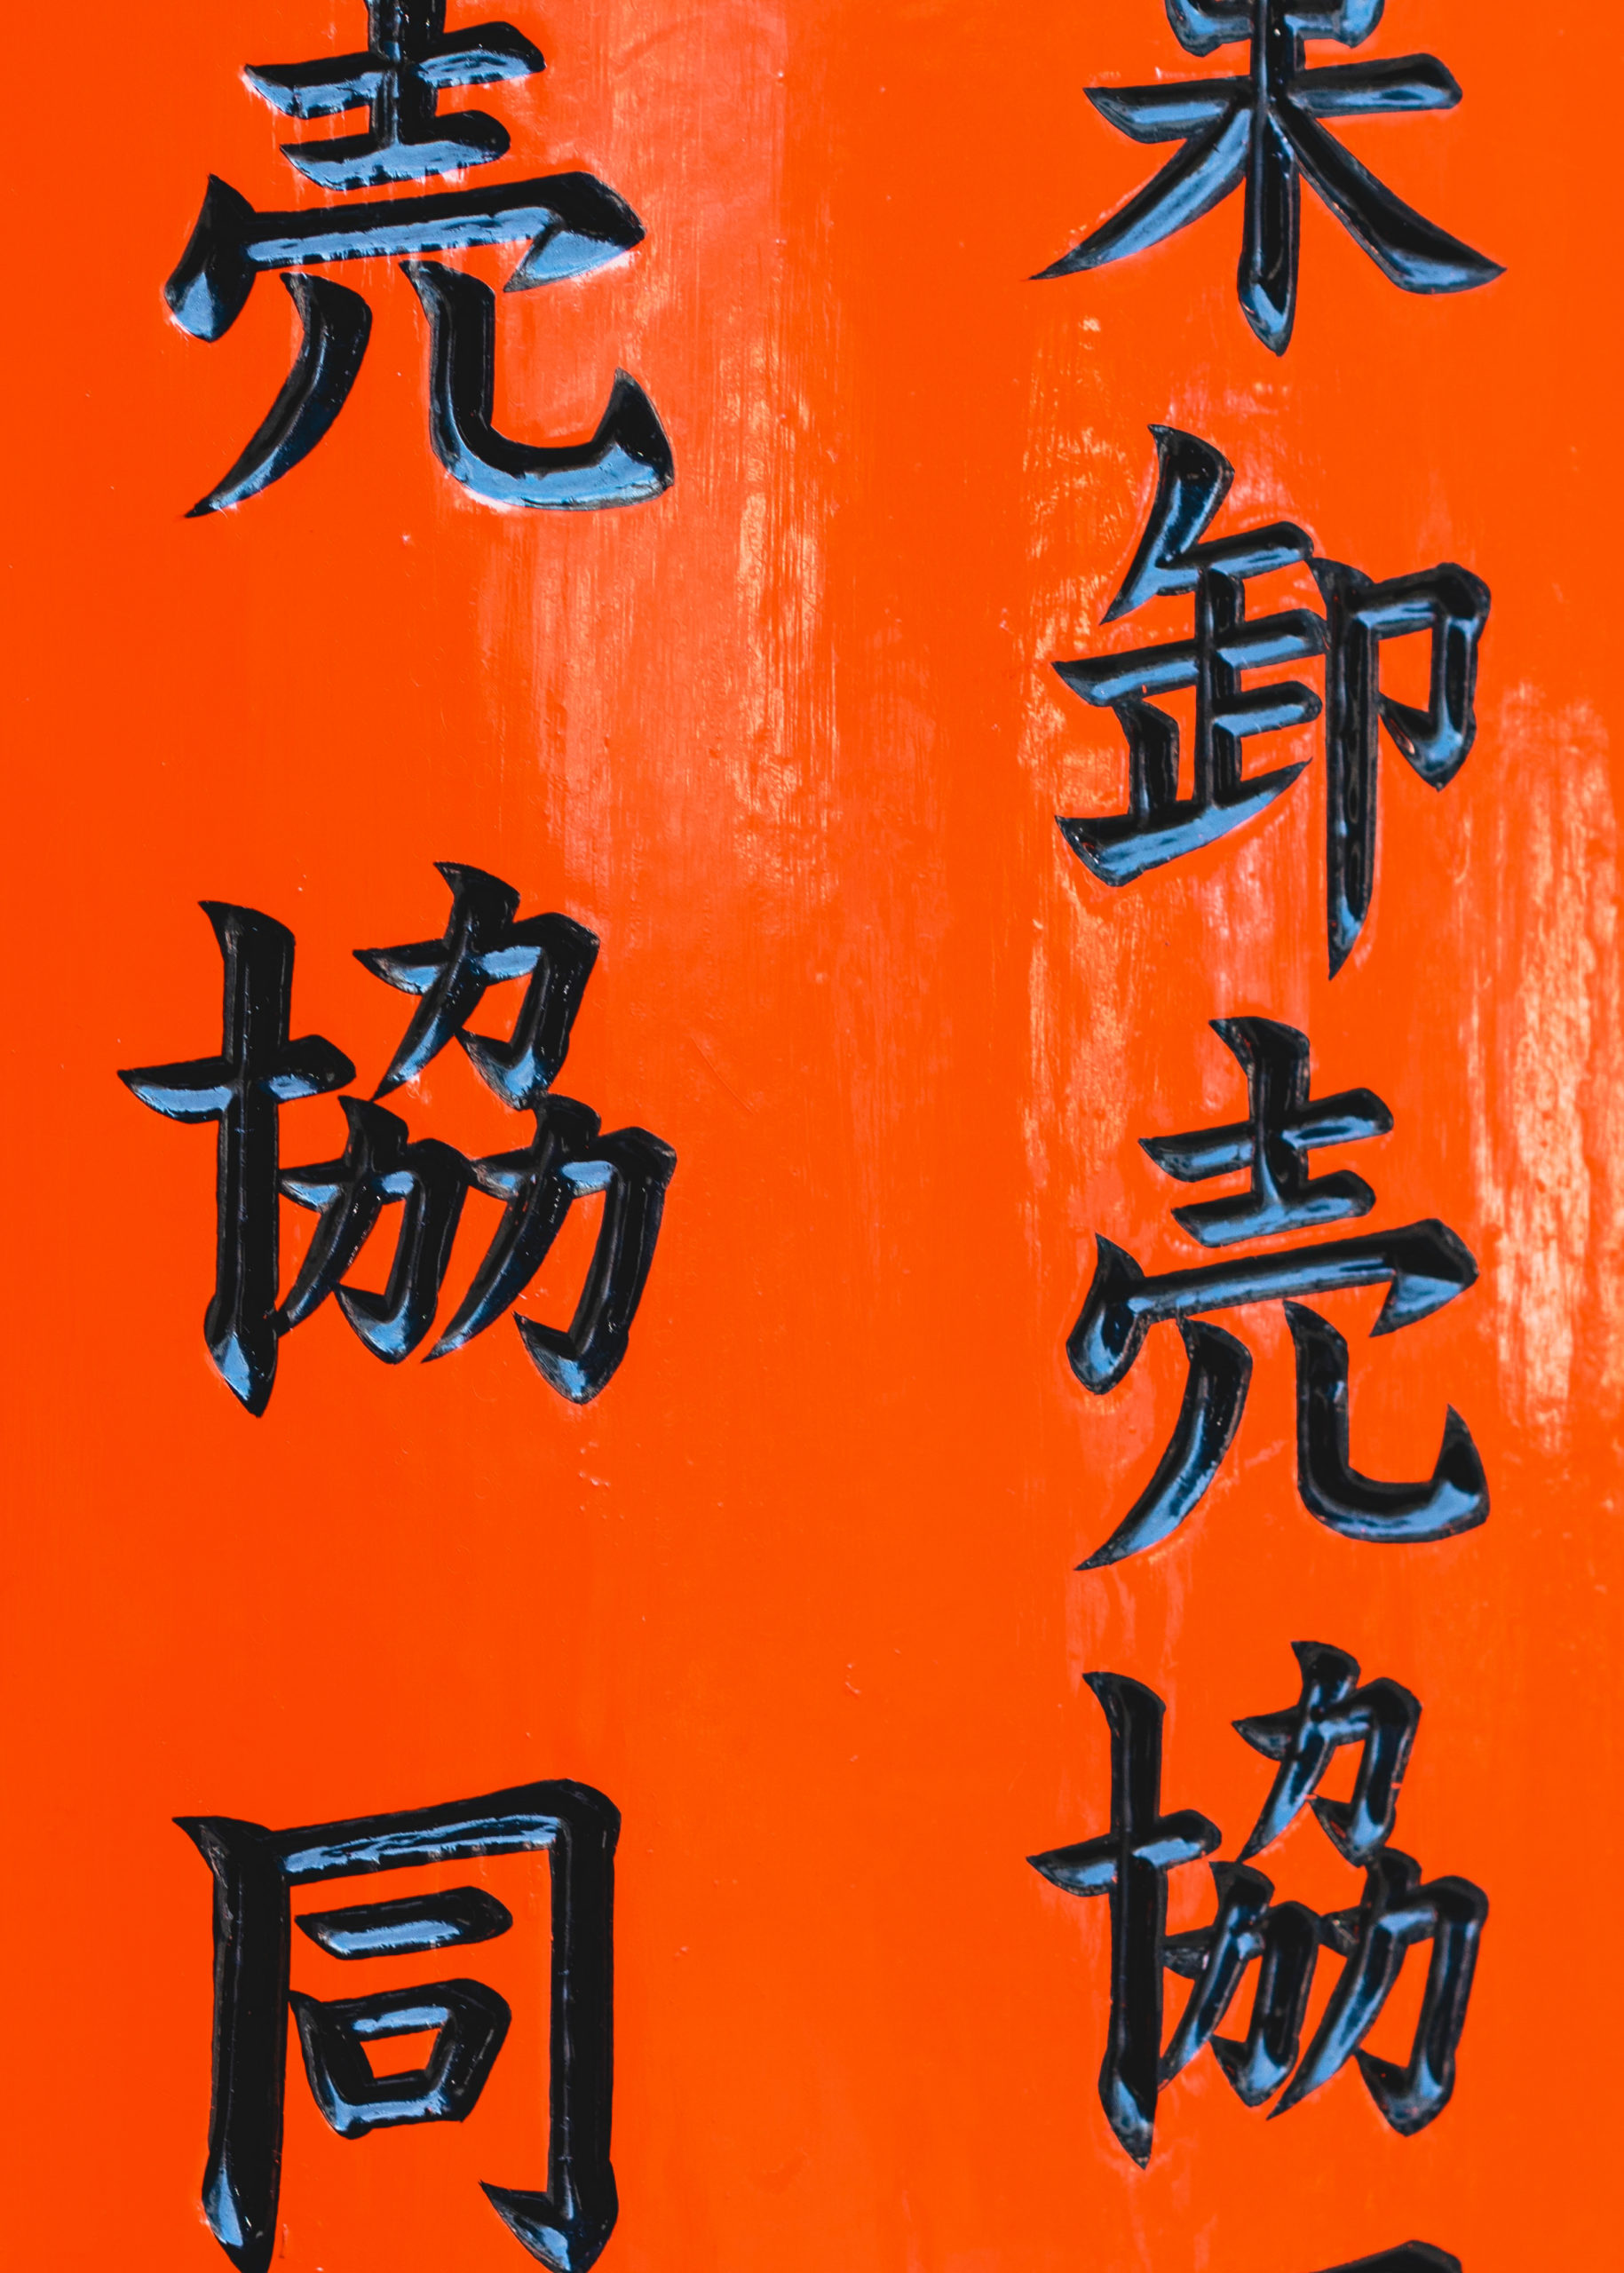 果卸売協
売協同